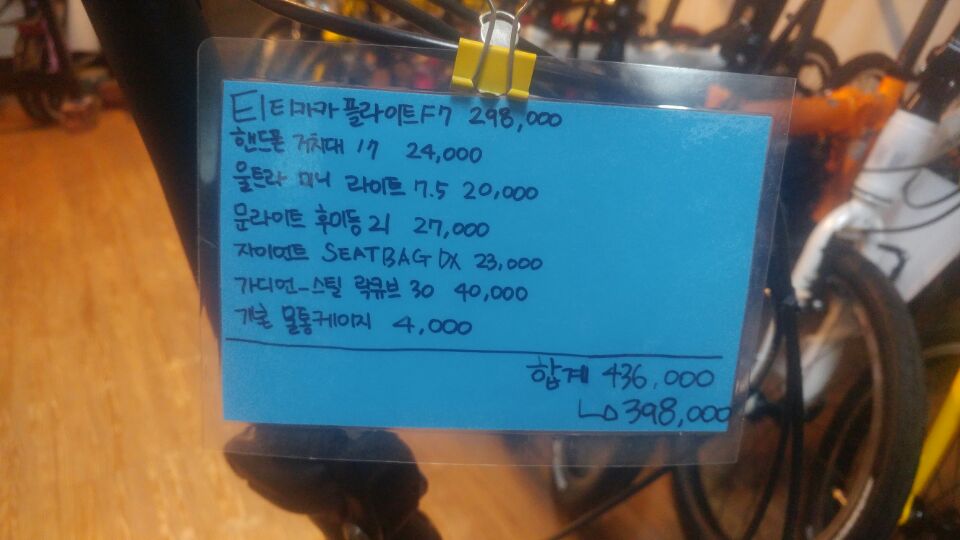 티티카카 플라이트 F7 298,000
핸드폰 거치대 17 24,000
울트라 미니 라이트 7.5 20,000
문라이트 후미등 21 27,000
자이언트 SEATBAG DX 23,000
가디언-스틸 락큐브 30 40,000
기본 물통케이지 4,000
합계 436,000
↳ 398,000